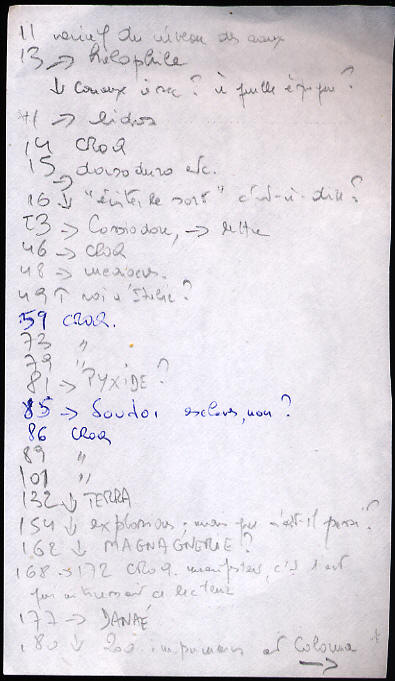 11 du niveau des eaux
13 → hélophile
↓ Canaux à sec ? à quelle époque ?
→ lidos
14 CROQ
15 → dorsoduro etc.
16 ↓ "éviter le sort" c'est-à-dire ?
→ Cassiodore, → lettre
46 → CROQ
48 →
49 ↑ roi d'Italie ?
59 CROQ.
73 "
79 "
81 → PYXIDE ?
85 → Soudoi esclaves, non ?
86 CROQ
89 "
101 "
132 ↓ TERRA
154 ↓ explosions : mais que s'est-il passé ?
162 ↓ MAGNAGNERIE ?
168 → 172 CROQ. c'est
ce lecteur
177 → DANAÉ
180 ↓ 200 imprimeurs et Colonna
→